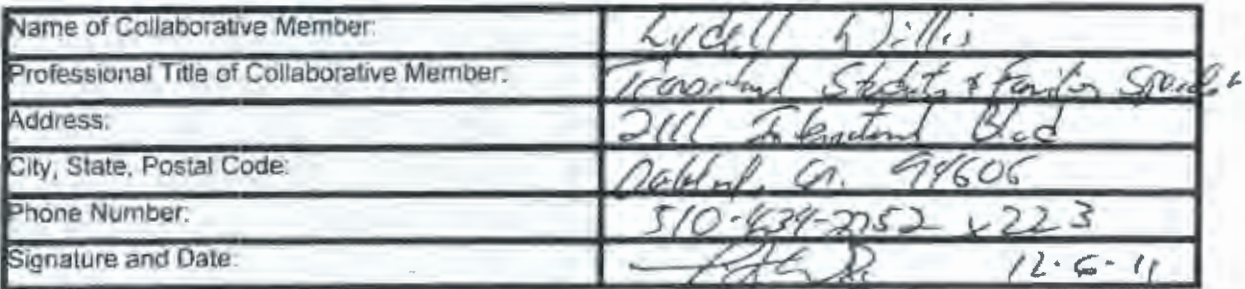 Name of Collaborative Member: Lydell Willis
Professional Title of Collaborative Member: Transitional Students & Families
Address: 2111 International Blvd
City, State, Postal Code: Oakland, CA. 94606
Phone Number: 510-434-7752 x223
Signature and Date: 12-6-11